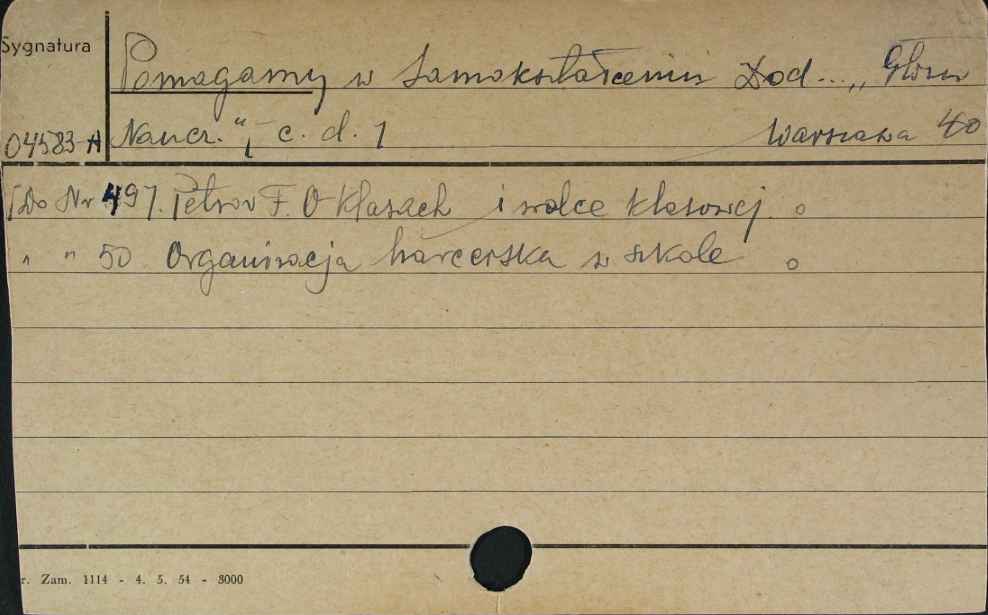 Sygnatura
Pomagamy w Samokształceniu Dod... „Głosu
04583-A Naucz.", c. d. 1 Warszawa 40
[Do Nr 49]. Petrov F. O klasach i walce klasowej o
" " 50 Organizacja harcerska w szkole o
r. Zam. 1114 - 4. 5. 54 - 3000